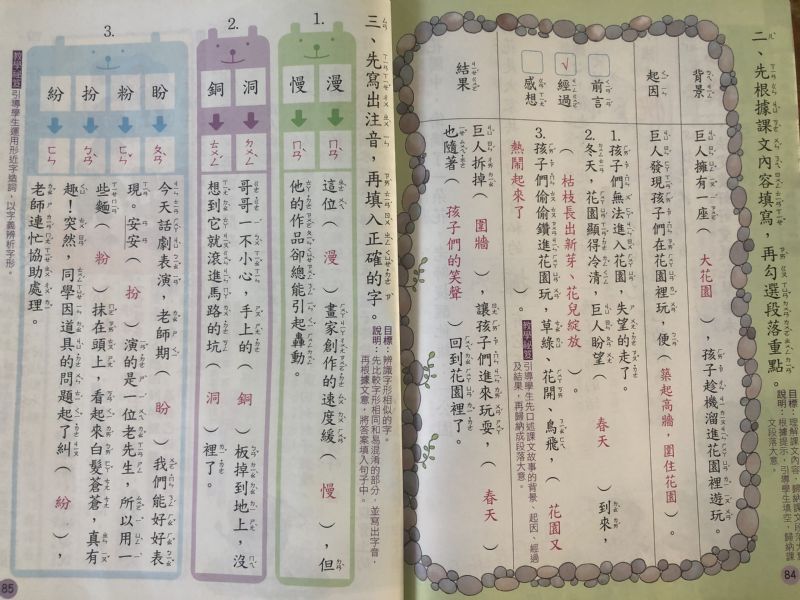 二、先根據課文內容填寫，再勾選段落重點。
目標：理解課文內容，歸納段落大意
說明：根據提示，引導學生填空，歸納課
文段落大意。
背景
巨人擁有一座（大花園），孩子趁機溜進花園裡遊玩。
起因
巨人發現孩子們在花園裡玩，便（築起高牆，圍住花園）。
前言
√經過
感想
1. 孩子們無法進入花園，失望的走了。
2. 冬天，花園顯得冷清，巨人盼望（春天）到來，
（枯枝長出新芽、花兒綻放）。
3. 孩子們偷偷鑽進花園玩，草綠、花開、鳥飛，（花園又
熱鬧起來了）。
教學補充 引導學生先口述課文故事的背景、起因、經過
及結果，再歸納成段落大意。
結果
巨人拆掉（圍牆），讓孩子們進來玩耍，（春天）
也隨著（孩子們的笑聲）回到花園裡了。
84
三、先寫出注音，再填入正確的字。
目標：辨識字形相似的字。
說明：先比較字形相同和易混淆的部分，並寫出字音，
再根據文意，將答案填入句子中。
1.
漫 ㄇㄢˋ
慢 ㄇㄢˋ
這位（漫）畫家創作的速度緩（慢），但
他的作品卻總能引起轟動。
2.
洞 ㄉㄨㄥˋ
銅 ㄊㄨㄥˊ
哥哥一不小心，手上的（銅）板掉到地上，沒
想到它就滾進馬路的坑（洞）裡了。
3.
盼 ㄆㄢˋ
粉 ㄈㄣˇ
扮 ㄅㄢˋ
紛 ㄈㄣ
今天話劇表演，老師期（盼）我們能好好表
現。安安（扮）演的是一位老先生，所以用一
些麵（粉）抹在頭上，看起來白髮蒼蒼，真有
趣！突然，同學因道具的問題起了糾（紛），
老師連忙協助處理。
引導學生運用形近字造詞，以字義辨析字形。
85